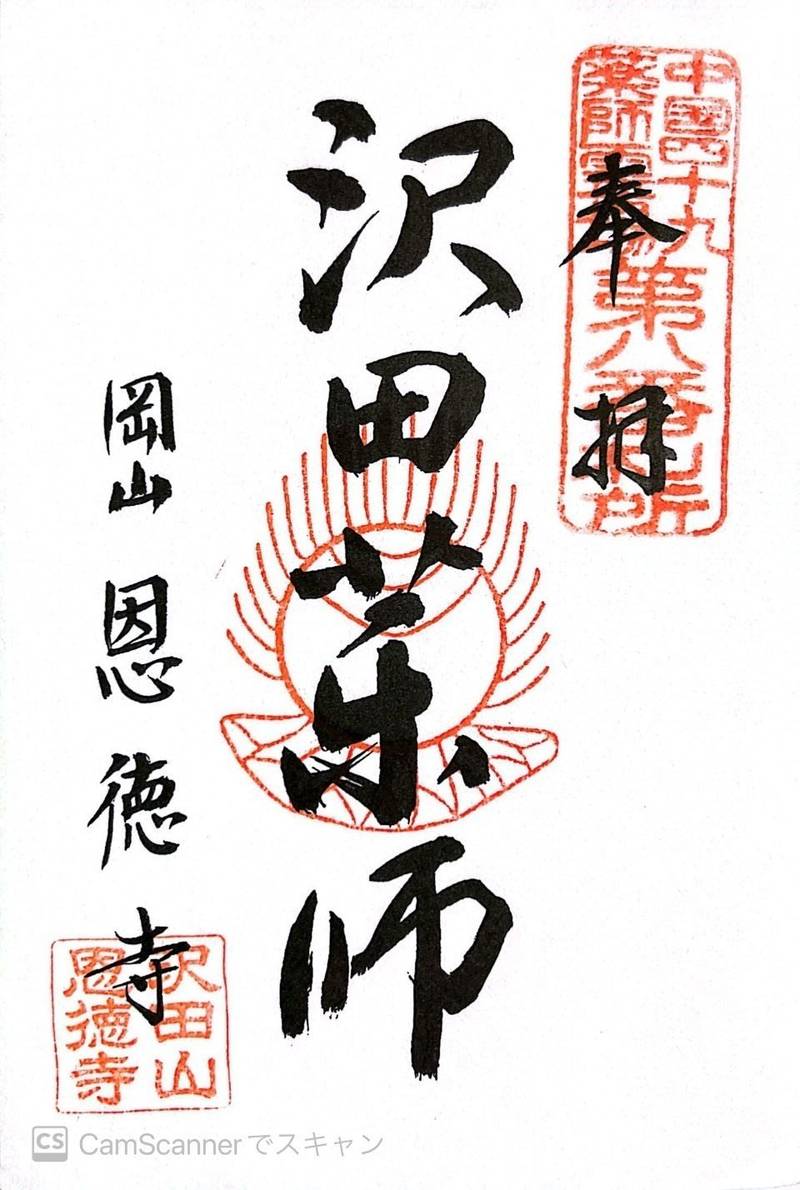 奉拝
中国四十九
薬師霊場第八番札所
沢田薬師
岡山 恩徳寺
沢田山
恩徳寺
CS CamScannerでスキャン